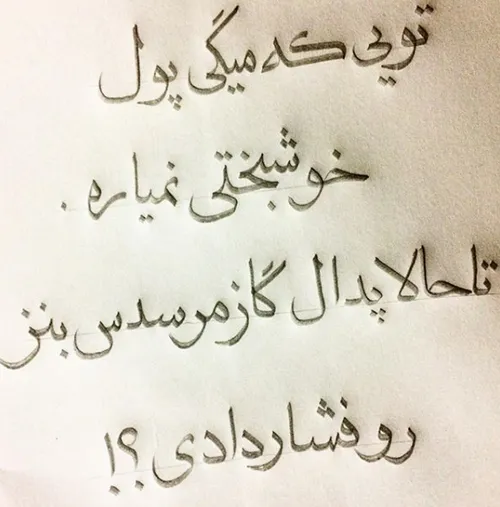 تویی که میگی پول
خوشبختی نمیاره .
تا حالا پدال گاز مرسدس بنز
رو فشار دادی ؟!